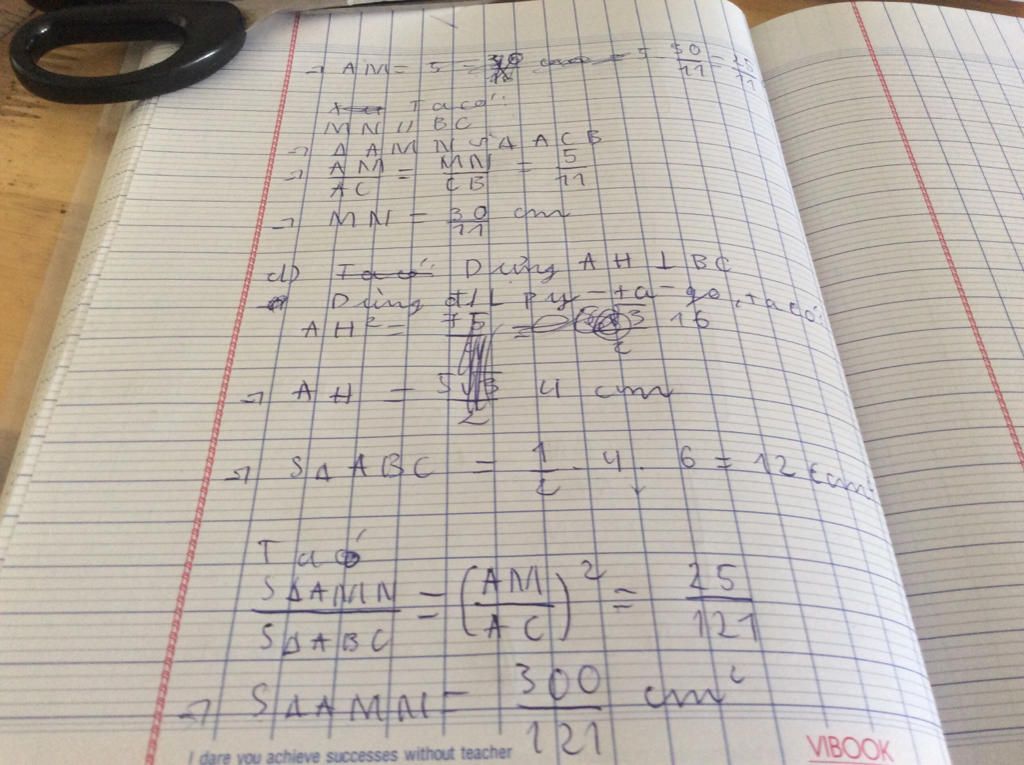 → AM = 5 - = 5 - 30/11 = 25/11
Ta có:
MN // BC
→ Δ AMN ᔕ Δ ACB
→ AM/AC = MN/CB = 5/11
→ MN = 30/11 cm
d) Ta có: Dựng AH ⊥ BC
Dùng đ/L py-ta-go, ta có:
AH² = 16
→ AH = 4 cm
→ SΔABC = 1/2 . 4 . 6 = 12 cm²
Ta có
SΔAMN/SΔABC = (AM/AC)² = 25/121
→ SΔAMN = 300/121 cm²
I dare you achieve successes without teacher
VIBOOK